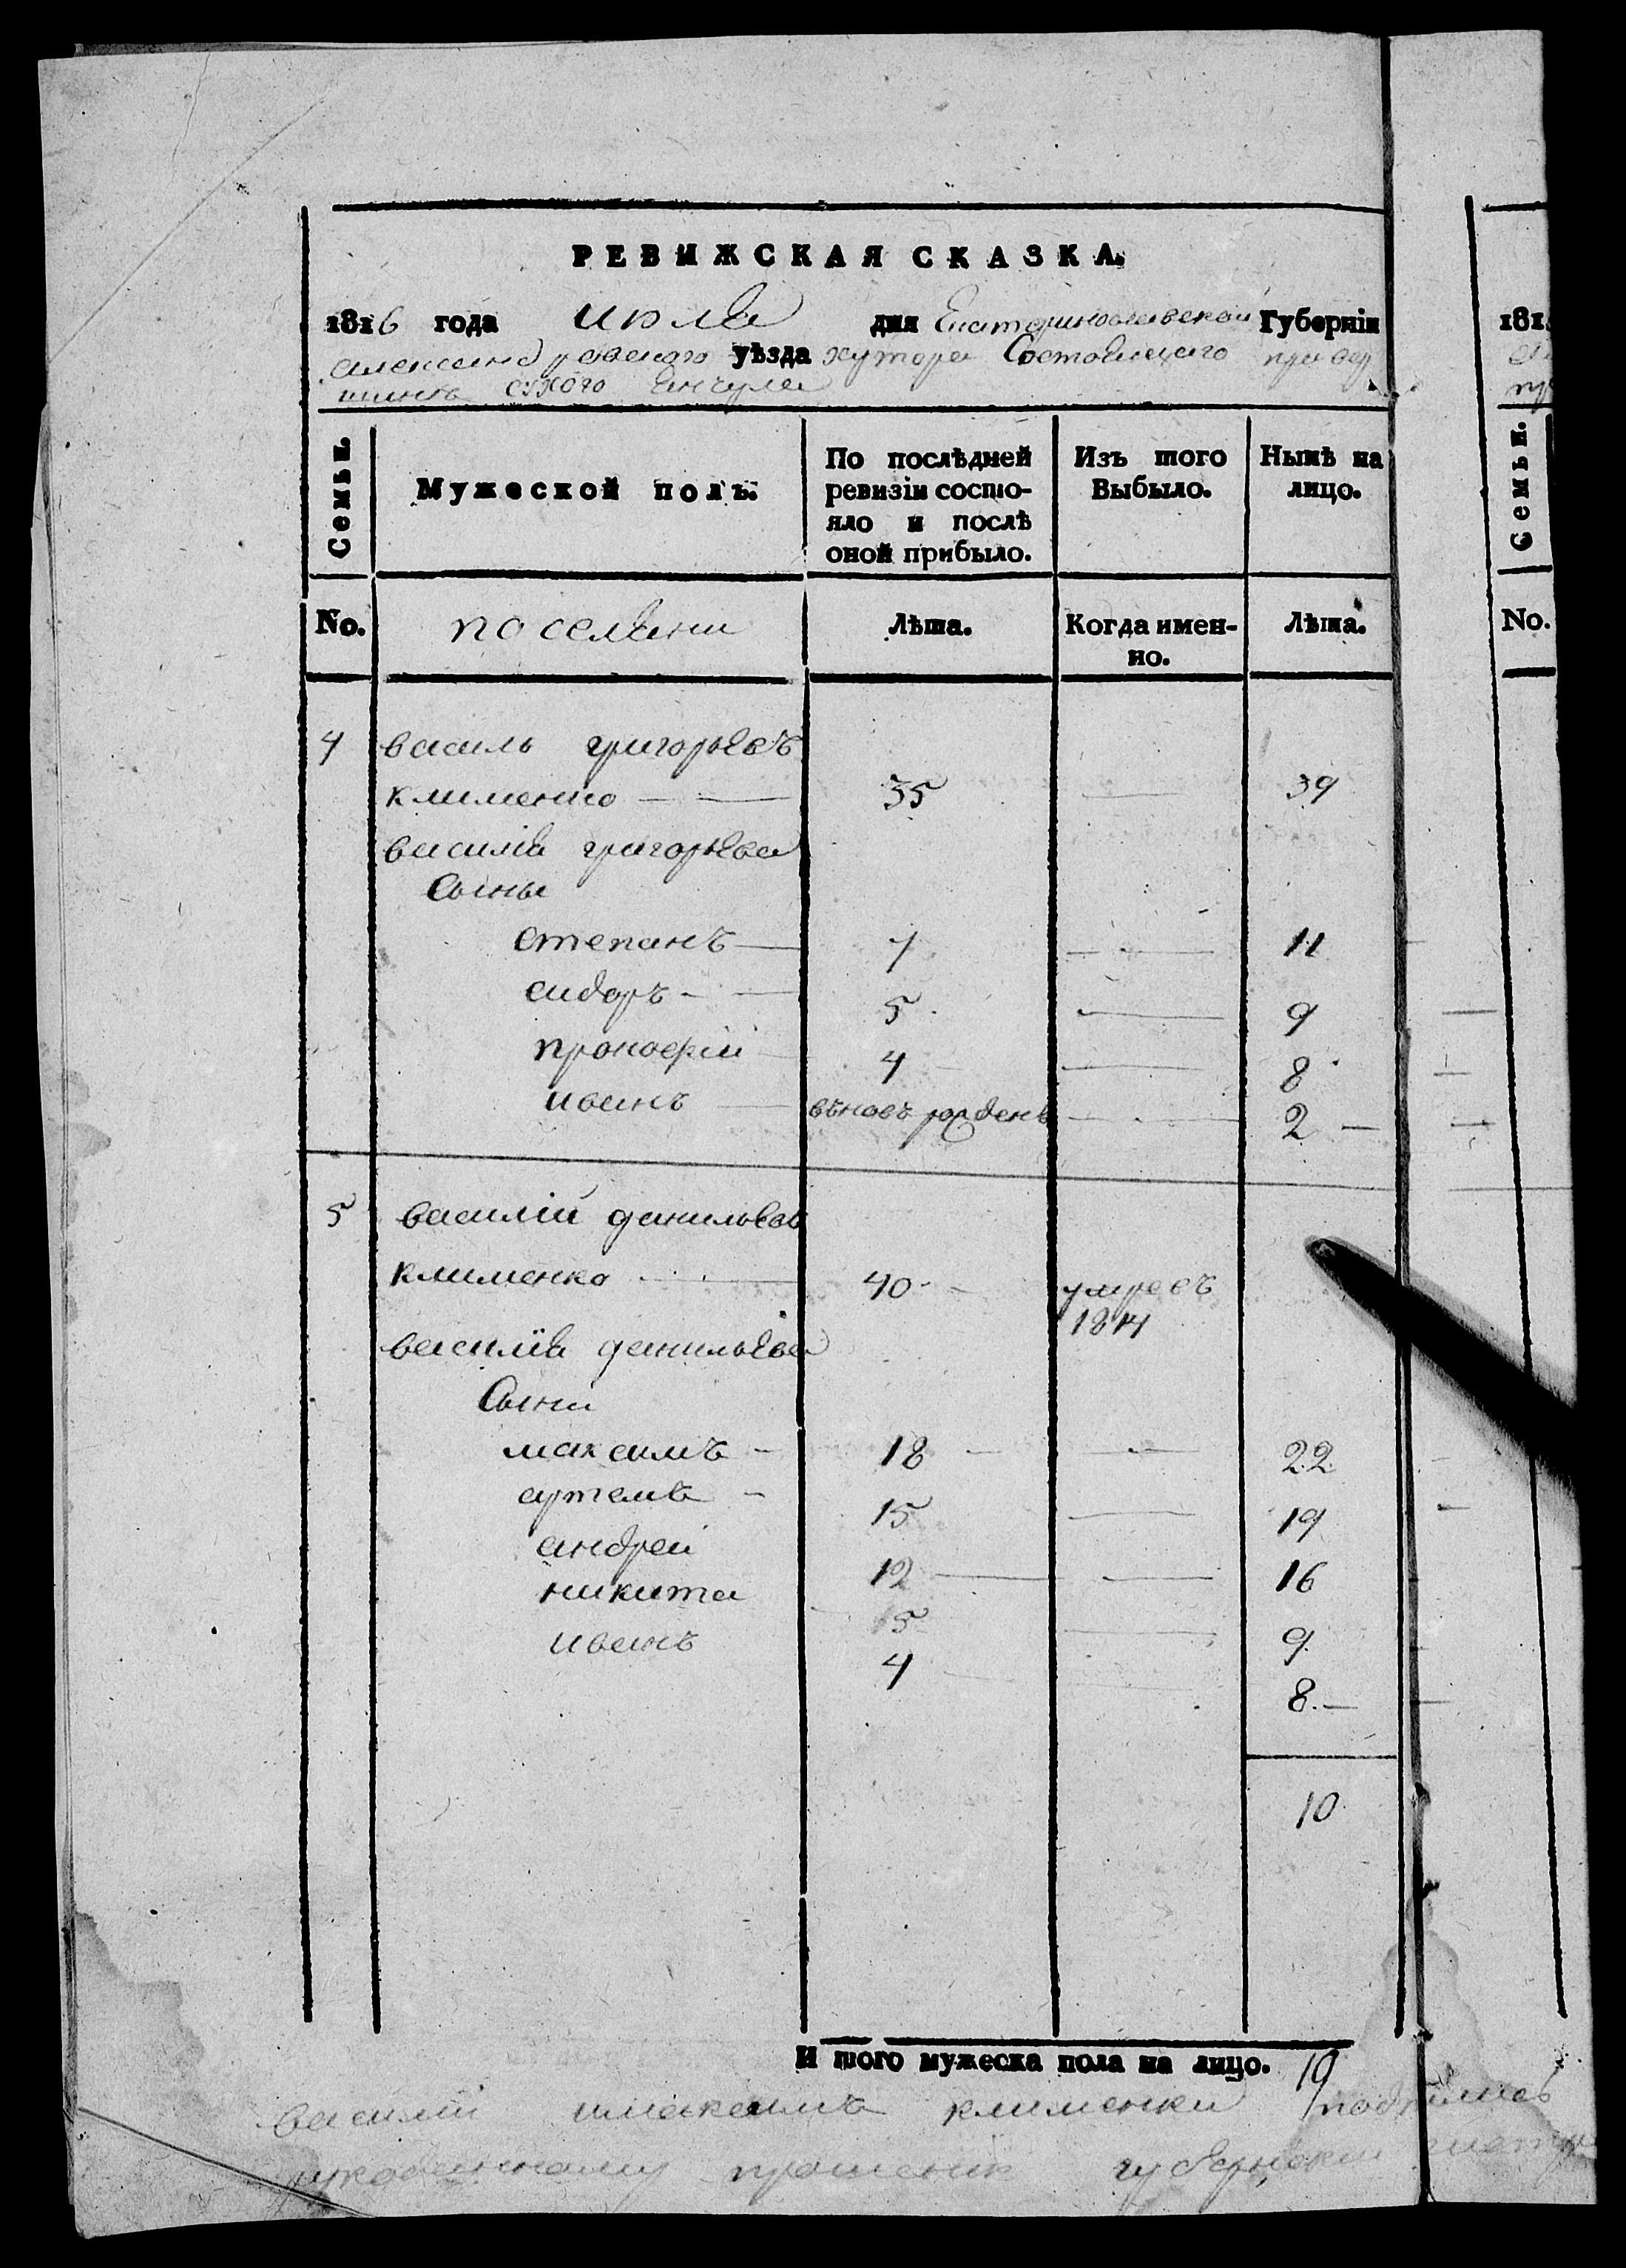 РЕВИЖСКАЯ СКАЗКА.
1816 года июля дня Екатеринославской Губернїи
александровского уѣзда хутора Состоящего при вер
шинѣ сухого Янчула
Семьи. Мужеской полъ. По послѣдней ревизїи состояло и послѣ оной прибыло. Изъ того Выбыло. Нынѣ на лицо.
No. поселяни Лѣта. Когда именно. Лѣта.
4 василь григорьевъ
клименко 35 39
василія григорьева
Сыны
степанъ 7 11
сидоръ 5 9
прокофій 4 8
иванъ вѣновъ рожденъ 2
5 василій данильевъ
клименко 40 умре въ
1814
василія данильева
Сыни
максимъ 18 22
артемъ 15 19
андрей 12 16
никита 5 9
иванъ 4 8
10
И того мужеска пола на лицо. 10
василий имаксимъ клименки
прошению губернскии
181
Семьи.
No.